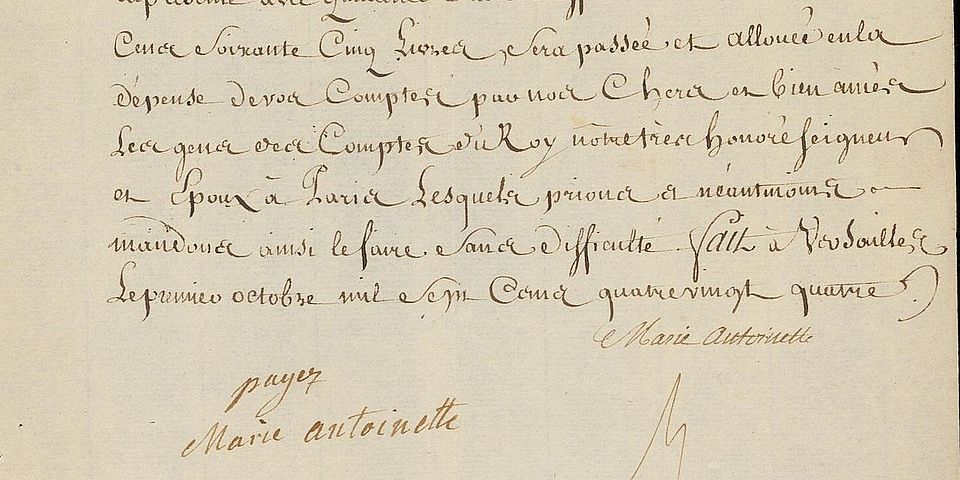 Cens soixante Cinq Livres, sera passée et allouée en la
dépense de vos Comptes par nos Chers et bien amés
Les gens des Comptes du Roy nôtre très honoré seigneur
et Epoux à Paris Lesquels prions et néantmoins
mandons ainsi le faire sans difficulté. fait à Versailles
Le premier octobre mil sept Cens quatrevingt quatre ./.
Marie Antoinette
payez
Marie antoinette